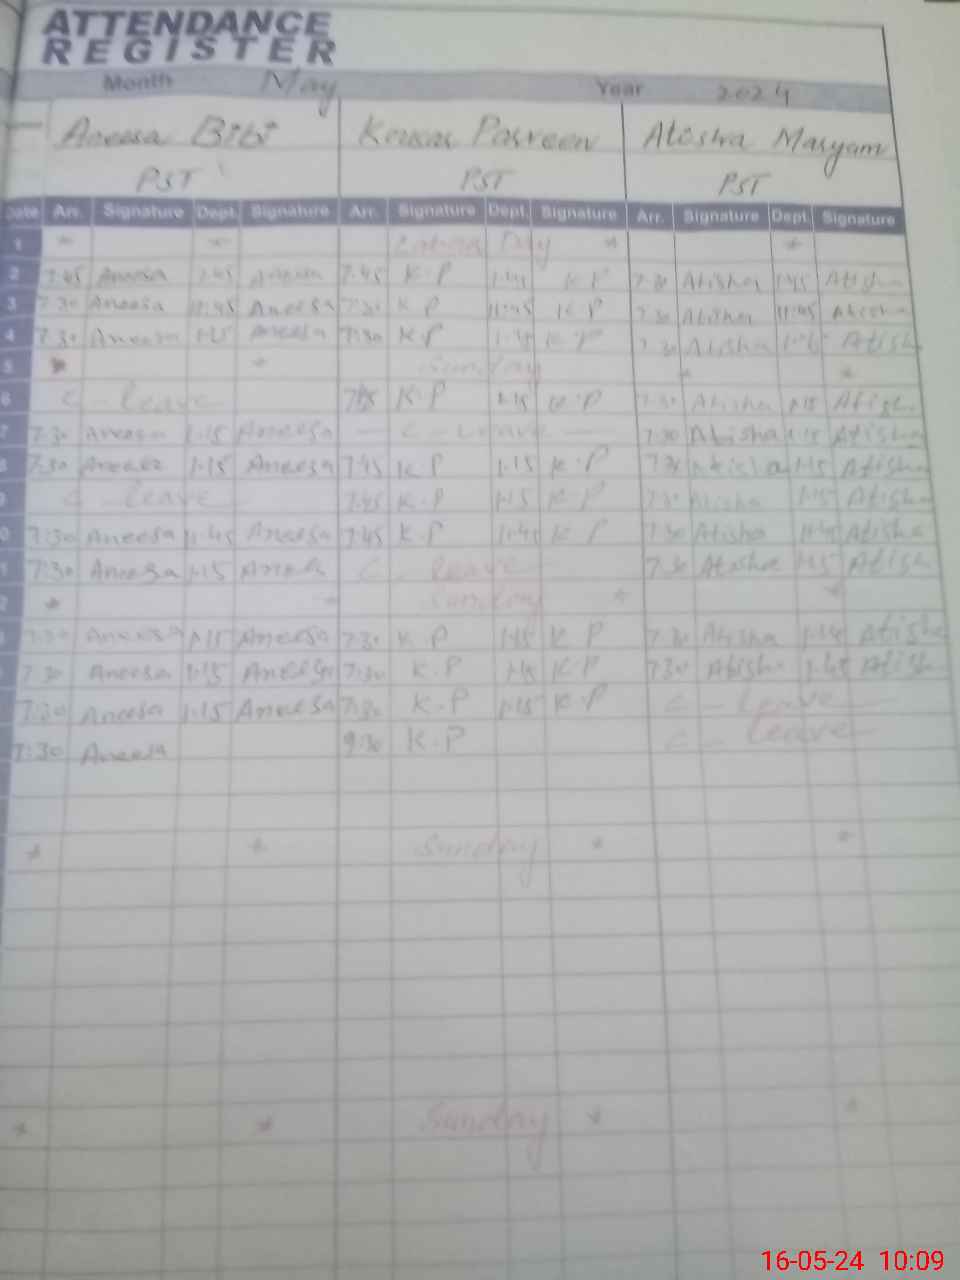 ATTENDANCE
REGISTER
Month May Year 2024
Aneesa Bibi Kousar Parveen Atisha Maryam
PST PST PST
Date Arr. Signature Dept. Signature Arr. Signature Dept. Signature Arr. Signature Dept. Signature
1 * * Labour Day * *
2 7:45 Aneesa 1:45 Aneesa 7:45 K.P K.P 7:30 Atisha 1:45 Atisha
3 7:30 Aneesa 11:45 Aneesa 7:30 K.P 11:45 K.P 7:30 Atisha 11:45 Atisha
4 7:30 Aneesa 1:15 Aneesa 7:30 K.P 1:15 K.P 7:30 Atisha Atish
5 * * Sunday * *
6 C - leave K.P 1:15 K.P 7:30 Atisha 1:15 Atish
7 7:30 Aneesa 1:15 Aneesa - C - Leave - 7:30 Atisha 1:15 Atisha
7:30 Aneesa 1:15 Aneesa 7:45 K.P 1:15 K.P 7:30 Atisha 1:15 Atisha
C - leave 7:45 K.P 1:15 K.P 7:30 Atisha 1:15 Atisha
7:30 Aneesa 11:45 Aneesa 7:45 K.P 11:45 K.P 7:30 Atisha 11:45 Atisha
7:30 Aneesa 1:15 Aneesa C - leave 7:30 Atisha 1:15 Atish
* * Sunday * *
7:30 Aneesa 1:15 Aneesa 7:30 K.P 1:15 K.P 7:30 Atisha Atisha
7:30 Aneesa 1:15 Aneesa 7:30 K.P K.P 7:30 Atisha Atish
7:30 Aneesa 1:15 Aneesa 7:30 K.P 1:15 K.P C - leave
7:30 Aneesa 9:30 K.P C - leave
* * Sunday * *
* * Sunday * *
16-05-24 10:09